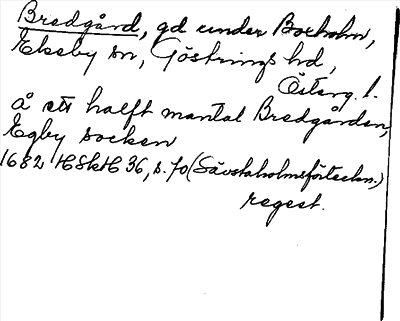 Bredgård, gd under Boxholm,
Ekeby sn, Göstrings hd,
Österg. l.
å ett halft mantal Bredgården,
Egby socken
1682 HSkH 36, s. 70 (Sävstaholmsförteckn.)
regest.